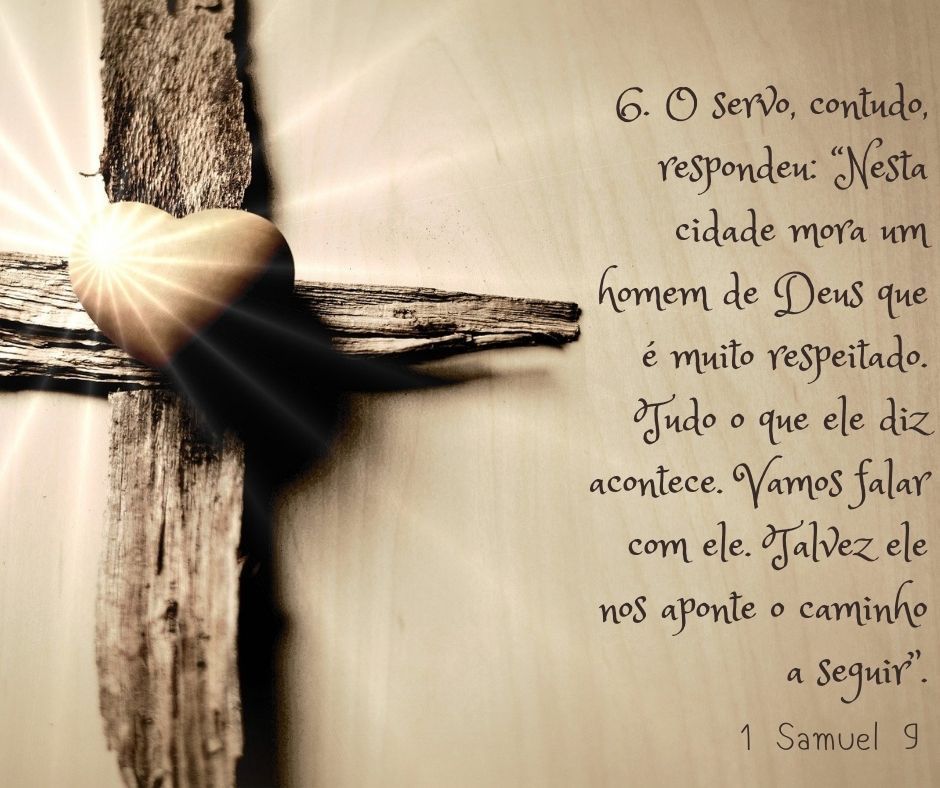 6. O servo, contudo,
respondeu: “Nesta
cidade mora um
homem de Deus que
é muito respeitado.
Tudo o que ele diz
acontece. Vamos falar
com ele. Talvez ele
nos aponte o caminho
a seguir”.
1 Samuel 9